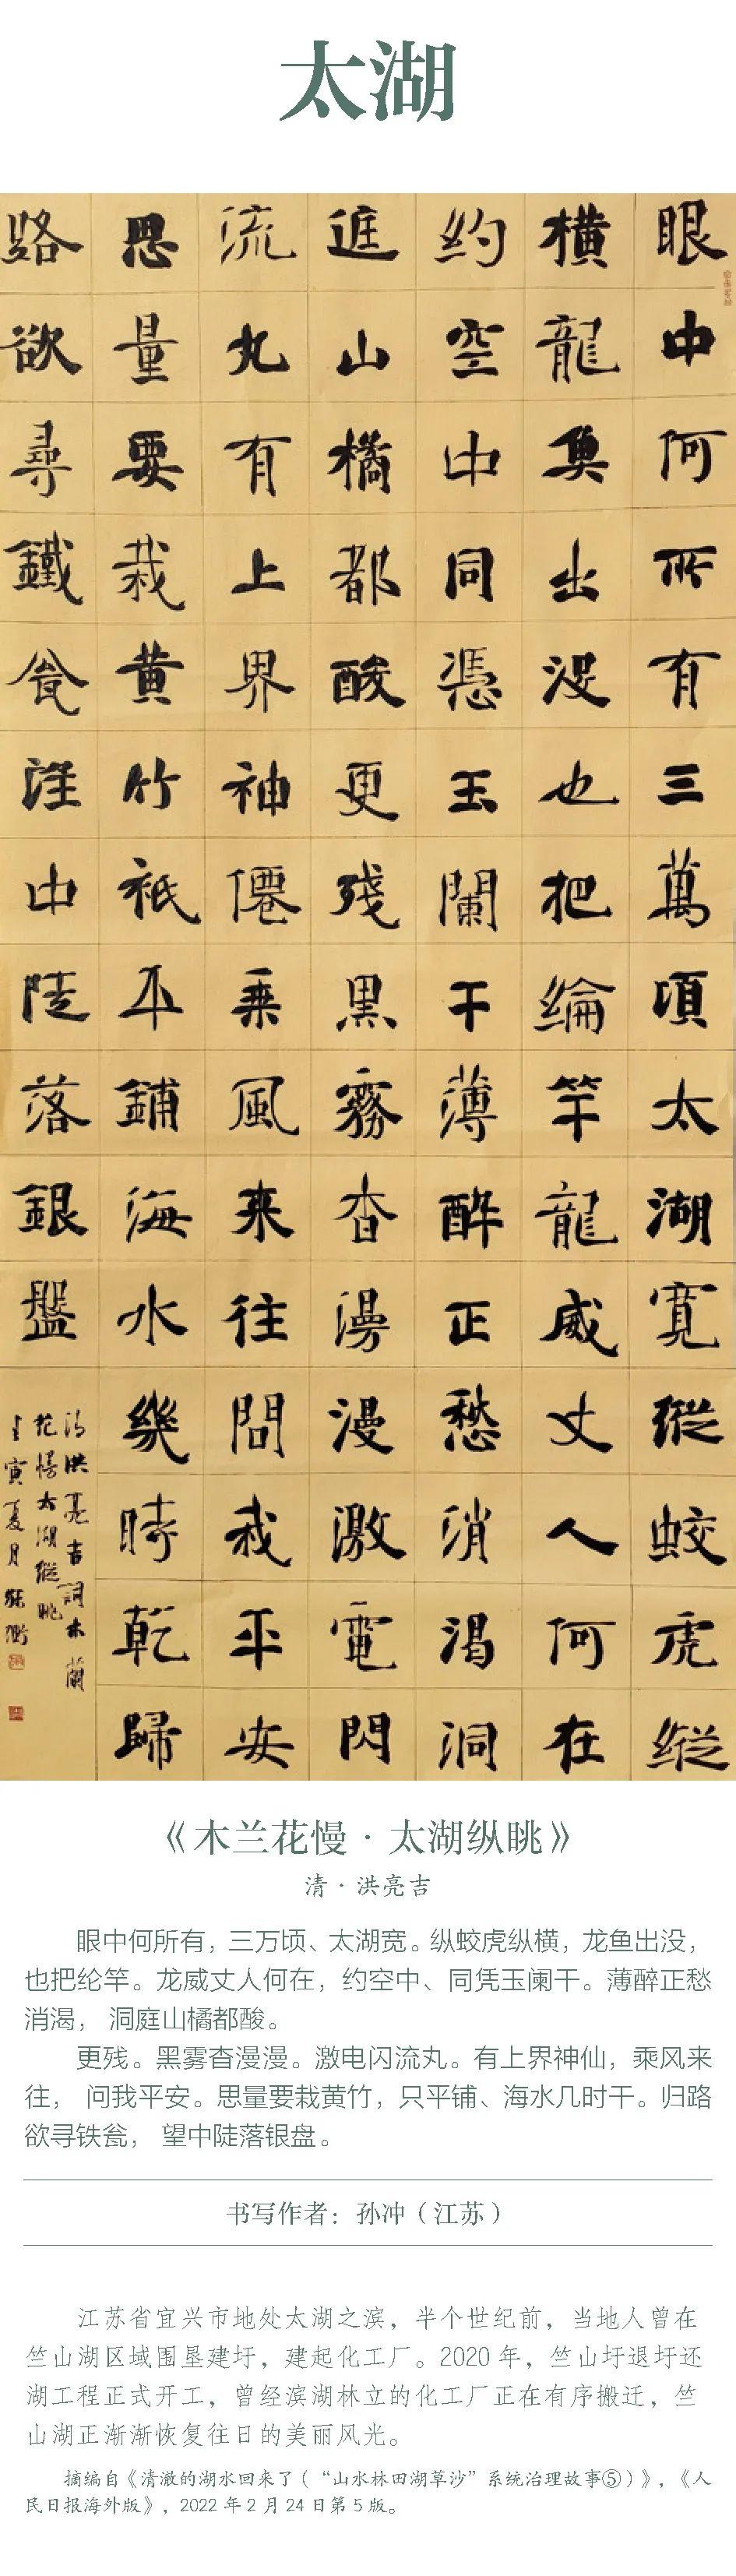 太湖
眼中何所有三萬頃太湖寬縱蛟虎縱
橫龍魚出没也把綸竿龍威丈人何在
約空中同憑玉闌干薄醉正愁消渴洞
庭山橘都酸更殘黑霧杳漫漫激電閃
流丸有上界神僊乘風来往問我平安
思量要栽黄竹祇平鋪海水幾時乾歸
路欲尋鐵瓮望中陡落銀盤
清洪亮吉詞木蘭
花慢太湖縱眺
壬寅夏月孫衝
《木兰花慢·太湖纵眺》
清·洪亮吉
眼中何所有，三万顷、太湖宽。纵蛟虎纵横，龙鱼出没，
也把纶竿。龙威丈人何在，约空中、同凭玉阑干。薄醉正愁
消渴， 洞庭山橘都酸。
更残。黑雾杳漫漫。激电闪流丸。有上界神仙，乘风来
往， 问我平安。思量要栽黄竹，只平铺、海水几时干。归路
欲寻铁瓮， 望中陡落银盘。
书写作者：孙冲（江苏）
江苏省宜兴市地处太湖之滨，半个世纪前，当地人曾在
竺山湖区域围垦建圩，建起化工厂。2020 年，竺山圩退圩还
湖工程正式开工，曾经滨湖林立的化工厂正在有序搬迁，竺
山湖正渐渐恢复往日的美丽风光。
摘编自《清澈的湖水回来了（“山水林田湖草沙”系统治理故事⑤）》，《人
民日报海外版》，2022 年 2 月 24 日第 5 版。